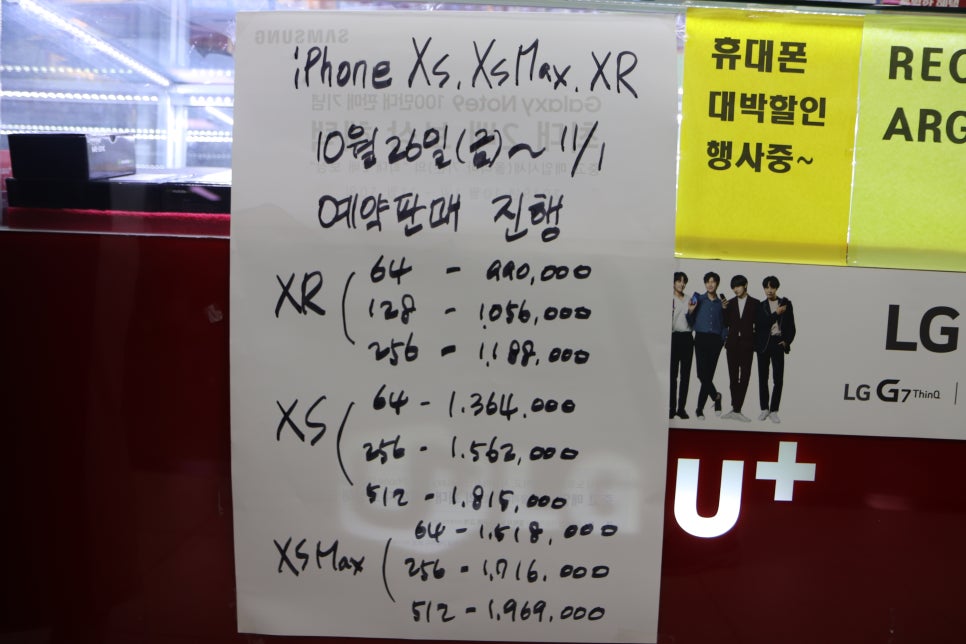 iPhone XS, XS Max, XR
10월 26일(금)~ 11/1
예약판매 진행
XR
64 - 990,000
128 - 1,056,000
256 - 1,188,000
XS
64 - 1.364.000
256 - 1.562,000
512 - 1.815,000
XS Max
64 - 1.518,000
256 - 1,716.000
512 - 1.969.000
휴대폰
대박할인
행사중~
REC
ARG
LG
LG G7 ThinQ
U+
SAMSUNG
Galaxy Note9 100만대 판매 기념